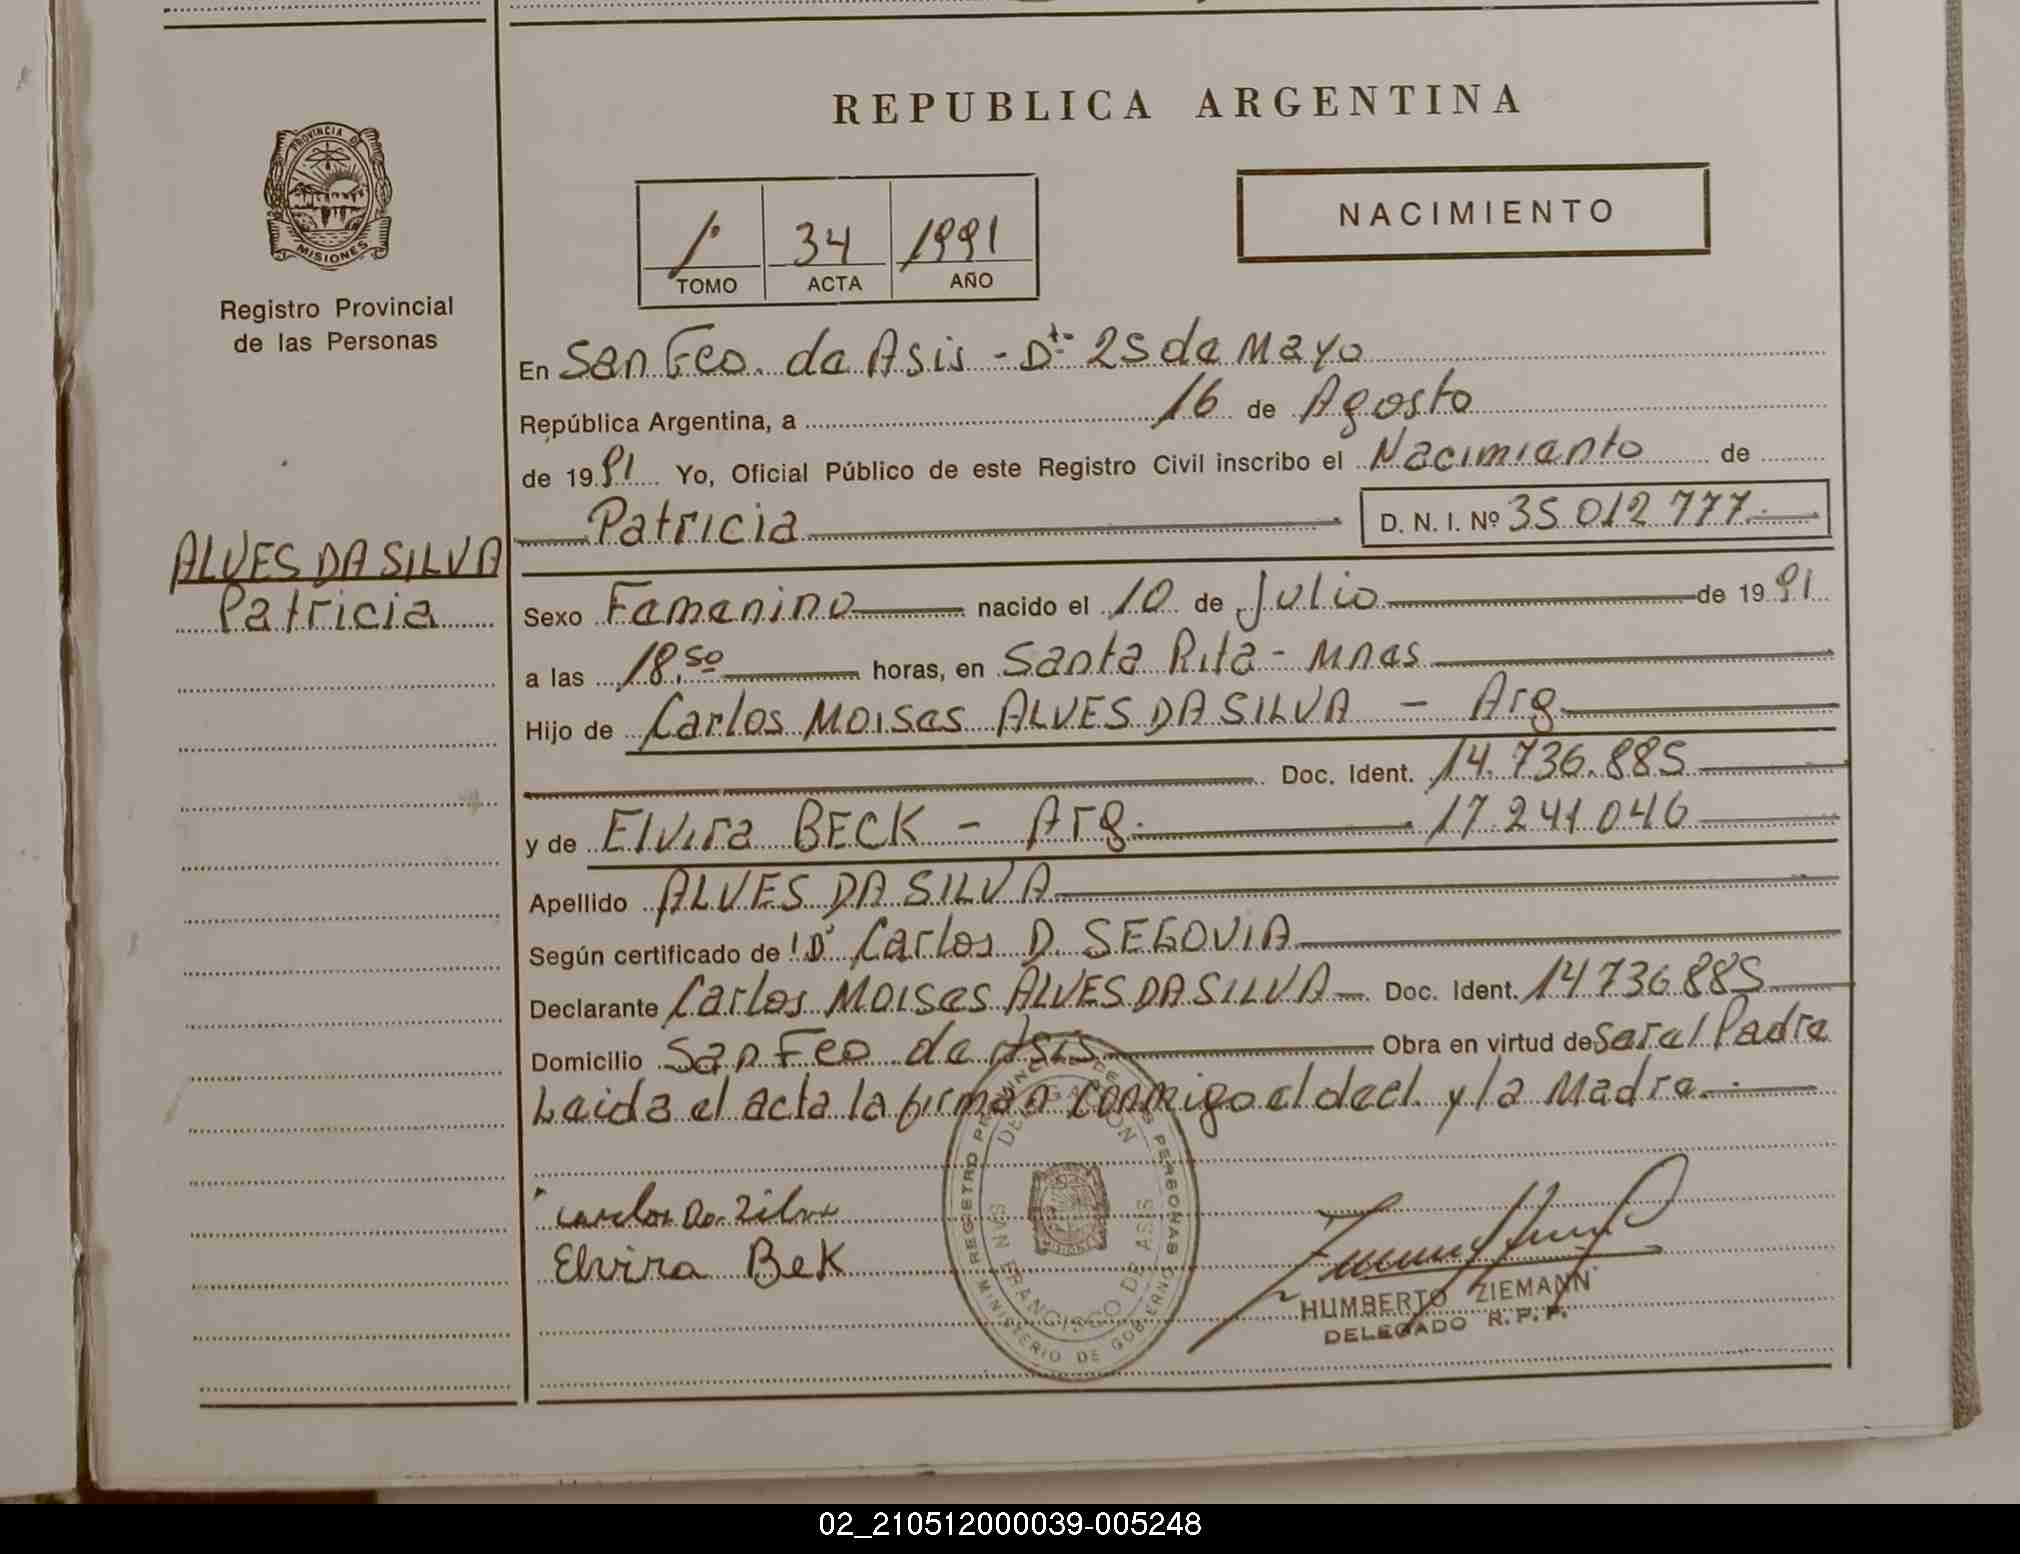 REPUBLICA ARGENTINA
PROVINCIA DE MISIONES
Registro Provincial
de las Personas
1º 34 1991
TOMO ACTA AÑO
NACIMIENTO
En San Fco. de Asis - Dt- 25 de Mayo
República Argentina, a 16 de Agosto
de 1991 Yo, Oficial Público de este Registro Civil inscribo el Nacimiento de
Patricia D. N. I. Nº 35 012 777
ALVES DA SILVA
Patricia
Sexo Femenino nacido el 10 de Julio de 1991
a las 18,50 horas, en Santa Rita - Mnes
Hijo de Carlos Moises ALVES DA SILVA - Arg
Doc. Ident. 14.736.885
y de Elvira BECK - Arg. 17 241 046
Apellido ALVES DA SILVA
Según certificado de Dr Carlos D. SEGOVIA
Declarante Carlos Moises ALVES DA SILVA Doc. Ident. 14 736 885
Domicilio San Fco de Asis Obra en virtud de Ser el Padre
Leida el acta la firman conmigo el decl. y la Madre
Carlos Da Silva
Elvira Bek
REGISTRO PROVINCIAL DE LAS PERSONAS
MINISTERIO DE GOBIERNO
DELEGACION
SAN FRANCISCO DE ASIS
HUMBERTO ZIEMANN
DELEGADO R. P. P.
02_210512000039-005248